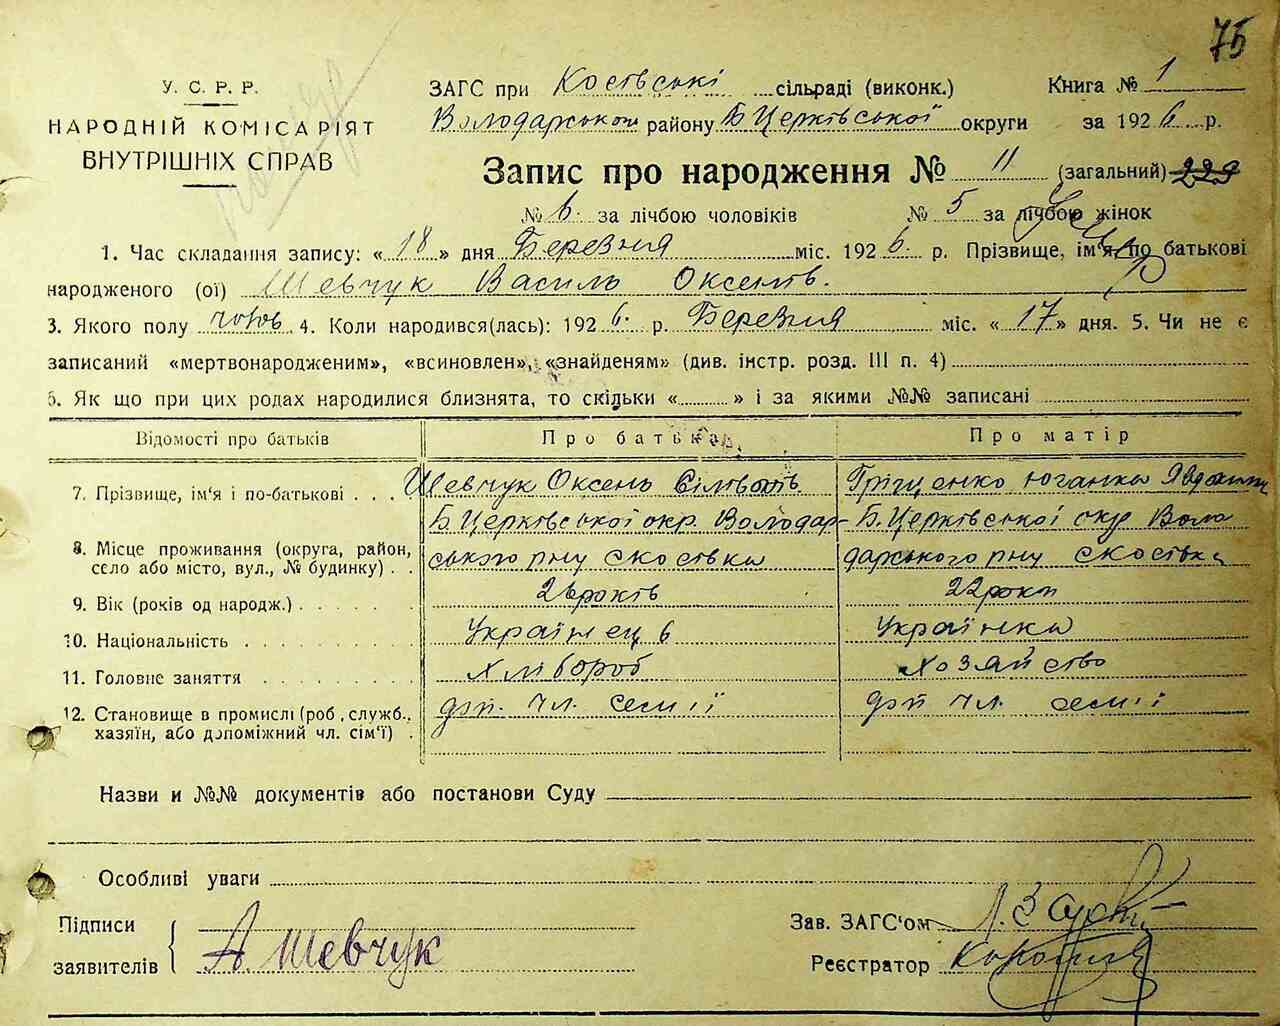 75
У. С. Р. Р.
НАРОДНІЙ КОМІСАРІЯТ
ВНУТРІШНІХ СПРАВ
ЗАГС при Костівські сільраді (виконк.) Книга № 1
Володарському району Б Церківської округи за 1926 р.
Запис про народження № 11 (загальний) 229
№ 6. за лічбою чоловіків № 5 за лічбою жінок
1. Час складання запису: « 18 » дня Березня міс. 1926 р. Прізвище, ім'я, по батькові
народженого (ої) Шевчук Василь Оксенів.
3. Якого полу чолов 4. Коли народився(лась): 1926. р. Березня міс. « 17 » дня. 5. Чи не є
записаний «мертвонародженим», «всиновлен», «знайденям» (див. інстр. розд. III п. 4)
6. Як що при цих родах народилися близнята, то скільки « » і за якими №№ записані
Відомості про батьків Про батька Про матір
7. Прізвище, ім'я і по-батькові . . . Шевчук Оксень Грищенко
Б. Церківської окр. Володар- Б. Церківської окр Воло
8. Місце проживання (округа, район, ського рну с Костівка дарського рну с Костівка
село або місто, вул., № будинку) . .
9. Вік (років од народж.) . . . . . . 26 років 22 роки
10. Національність . . . . . . . . . Українець Українка
11. Головне заняття . . . . . . . . хлібороб хозяйство
12. Становище в промислі (роб., служб., доп. чл. семії доп чл. семії
хазяїн, або допоміжний чл. сім'ї) .
Назви и №№ документів або постанови Суду
Особливі уваги
Підписи Зав. ЗАГС'ом
заявителів А. Шевчук Реєстратор